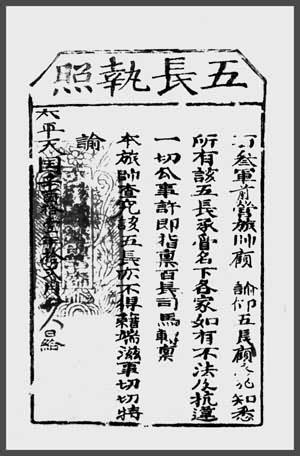 五長執照
叁軍前營旅帥顧 諭仰五長顧 知悉
所有該五長承管名下各家如有不法及抗違
一切公事許即指禀百長司馬轉禀
本旅帥查究該五長亦不得藉端滋事切切特
諭
太平天囯辛酉拾壹年拾 月 日給